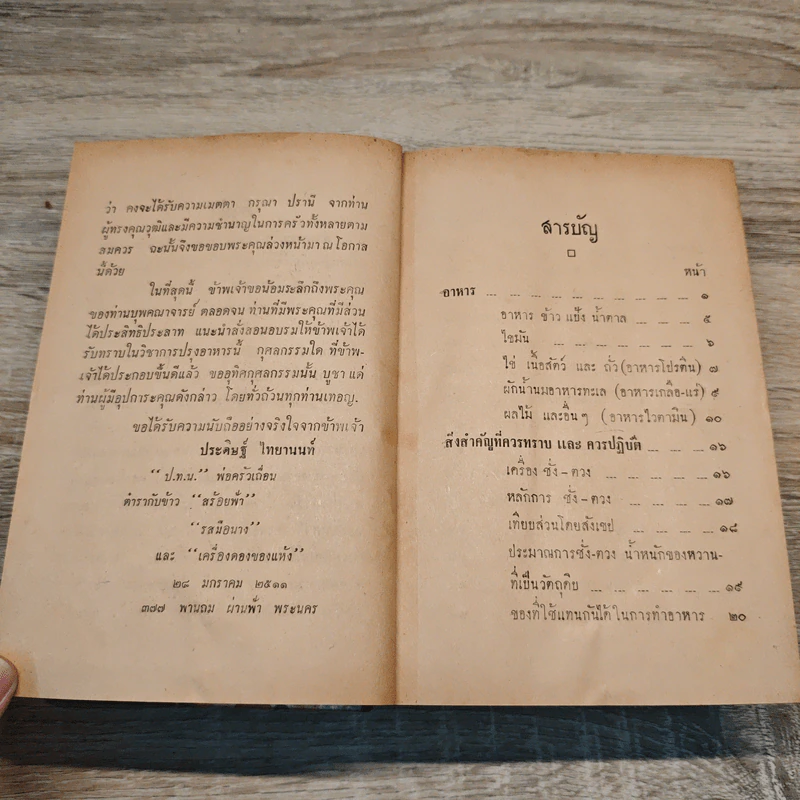 ว่า คงจะได้รับความเมตตา กรุณา ปรานี จากท่าน
ผู้ทรงคุณวุฒิและมีความชำนาญในการครัวทั้งหลายตาม
สมควร ฉะนั้นจึงขอขอบพระคุณล่วงหน้ามา ณ โอกาส
นี้ด้วย
ในที่สุดนี้ ข้าพเจ้าขอน้อมระลึกถึงพระคุณ
ของท่านบุพคณาจารย์ ตลอดจน ท่านที่มีพระคุณที่มีส่วน
ได้ประสิทธิ์ประสาท แนะนำสั่งสอนอบรมให้ข้าพเจ้าได้
รับทราบในวิชาการปรุงอาหารนี้ กุศลกรรมใด ที่ข้าพ-
เจ้าได้ประกอบขึ้นดีแล้ว ขออุทิศกุศลกรรมนั้น บูชา แด่
ท่านผู้มีอุปการะคุณดังกล่าว โดยทั่วถ้วนทุกท่านเทอญ.
ขอได้รับความนับถืออย่างจริงใจจากข้าพเจ้า
ประดิษฐ์ ไทยานนท์
“ ป.ท.น.” พ่อครัวเถื่อน
ตำรากับข้าว “สร้อยฟ้า”
“รสมือนาง”
และ “เครื่องดองของแห้ง”
๒๘ มกราคม ๒๕๑๑
๓๗๗ พานถม ผ่านฟ้า พระนคร
สารบัญ
หน้า
อาหาร ... ... ... ... ... ... ... ๑
อาหาร ข้าว แป้ง น้ำตาล ... ... ... ๕
ไขมัน ... ... ... ... ... ... ๖
ไข่ เนื้อสัตว์ และ ถั่ว (อาหารโปรตีน) ๗
ผักน้ำนมอาหารทะเล (อาหารเกลือ-แร่) ๙
ผลไม้ และอื่น ๆ (อาหารไวตามิน) ๑๐
สิ่งสำคัญที่ควรทราบ และ ควรปฏิบัติ ... ... ๑๖
เครื่อง ชั่ง - ตวง ... ... ... ... ๑๖
หลักการ ชั่ง - ตวง ... ... ... ๑๗
เทียบส่วนโดยสังเขป ... ... ... ๑๘
ประมาณการชั่ง-ตวง น้ำหนักของหวาน-
ที่เป็นวัตถุดิบ ... ... ... ... ๑๙
ของที่ใช้แทนกันได้ ในการทำอาหาร ๒๐